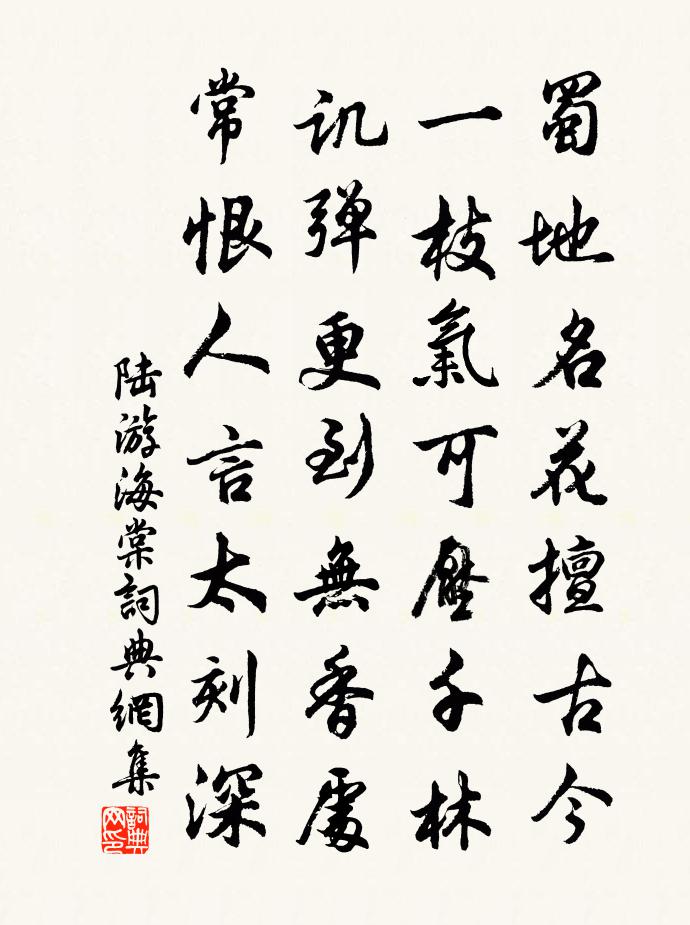 蜀地名花擅古今
一枝氣可壓千林
讥弹更到無香處
常恨人言太刻深
陆游海棠詞典網集
詞典网印